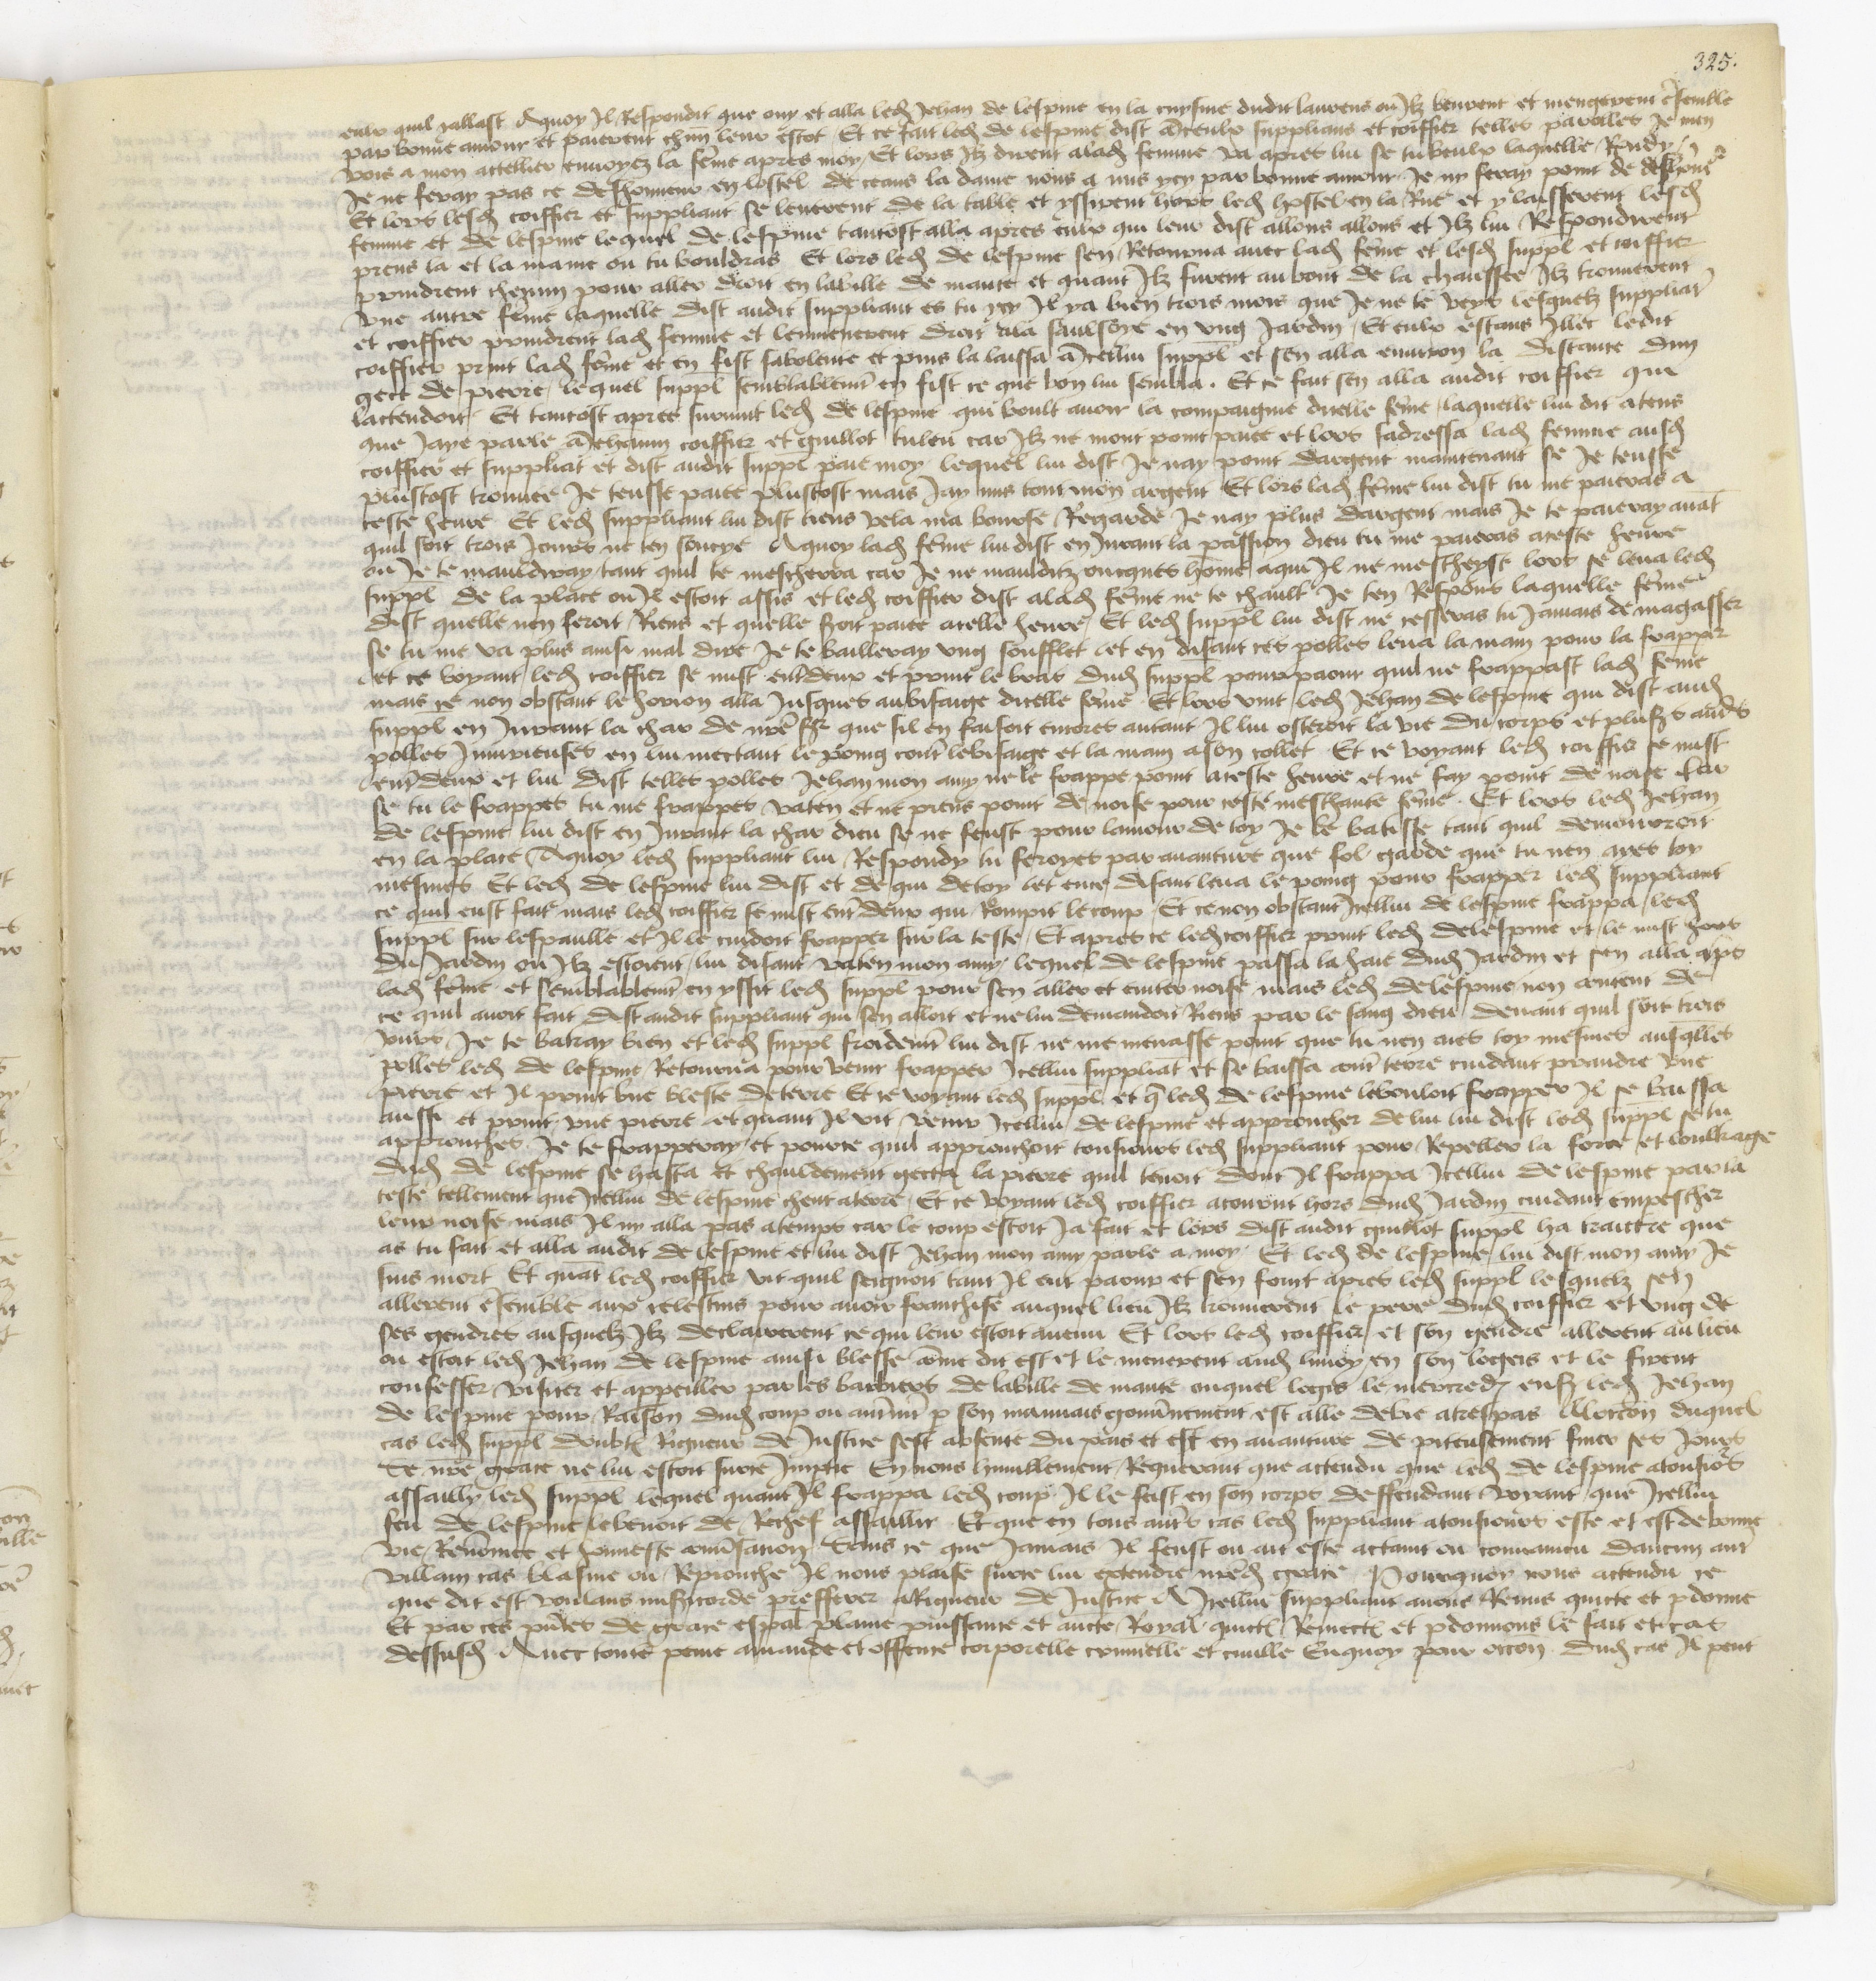 325.
eulx quil yallast Aquoy Il Respondit que ouy et alla led Jehan de lespine en la cuysine dudit laurens ou Ilz beurent et mengerent ensemble
par bonne amour et paierent chũn leur escot Et ce fait led de lespine dist a Iceulx supplians et coiffier telles parolles Je men
vois a mon attellier enuoyez la fẽme apres moy Et lors Ilz dirent a lad femme va apres lui se tu veulx laquelle Rendy
Je ne feray pas ce deshonneur en lostel de ceans la dame nous a mis ycy par bonne amour Je ny feray point de
Et lors lesd coiffier et suppliant se leuerent de la table et yssirent hors led hostel en la Rue et y laisserent lesd
femme et de lespine lequel de lespine tantost alla apres eulx qui leur dist allons allons et Ilz lui Respondirent
prens la et la maine ou tu vouldras Et lors led de lespine sen Retourna auec lad fẽme et lesd suppl et coiffier
prindrent chemin pour aller droit en la ville de mante et quant Ilz furent au bout de la chaussee Ilz trouuerent
vne autre fẽme laquelle dist audit suppliant es tu ycy Il ya bien trois mois que Je ne te veys lesquelz suppliãt
et coiffier prindrent lad femme et lemmenerent droit a la saulsoye en vng Jardin Et eulx estans Illec ledit
coiffier print lad fẽme et en fist sa volente et puis la laissa a Icellui suppl et sen alla enuiron la distance dun
gect de pierre lequel suppl semblablemt en fist ce que bon lui sembla. Et ce fait sen alla audit coiffier qui
lactendoit Et tantost apres suruint led de lespine qui voult auoir la compaignie dicelle fẽme laquelle lui dit atens
que Jaye parle a Jehanin coiffier et guillot tuleu car Ilz ne mont point paiee et lors sadressa lad femme ausd
coiffier et suppliãt et dist audit suppl paie moy lequel lui dist Je nay point dargent maintenant se Je teusse
plustost trouuee Je teusse paiee plustost mais Jay mis tout mon argent Et lors lad fẽme lui dist tu me paieras a
ceste heure Et led suppliant lui dist tiens vela ma bourse Regarde Je nay plus dargent mais Je te paieray auãt
quil soit trois Jours ne ten soucye Aquoy lad fẽme lui dist en Jurant la passion dieu tu me paieras a ceste heure
ou Je te mauldiray tant quil te mescherra car Je ne mauldiz oncques hõme a qui Il ne mescheyst lors se leua led
suppl de la place ou Il estoit assis et led coiffier dist a lad fẽme ne te chault Je ten Respons laquelle fẽme
dist quelle nen feroit Riens et quelle seroit paiee a celle heure Et led suppl lui dist ne cesseras tu Jamais de magasser
se tu me va plus ainsi mal dire Je te bailleray vng soufflet et en disant ces polles leua la main pour la frapper
et ce voyant led coiffier se mist entrdeux et print le bras dud suppl pour paour quil ne frappast lad fẽme
mais ce non obstant le horion alla Jusques au visaige dicelle fẽme Et lors vint led Jehan de lespine qui dist aud
suppl en Jurant la char de nrẽ sr que sil en faisoit encores autant Il lui osteroit la vie du corps et plusrs autrs
polles Iniurieuses en lui mectant le poing contr le visaige et la main a son collet Et ce voyant led coiffier se mist
entrdeux et lui dist telles polles Jehan mon amy ne le frappe point a ceste heure et ne fay point de noise Car
se tu le frappes tu me frappes vaten et ne prens point de noise pour ceste meschante fẽme. Et lors led Jehan
de lespine lui dist en Jurant la char dieu se ne feust pour lamour de toy Je le batisse tant quil demourroit
en la place Aquoy led suppliant lui Respondy tu feroyes par auanture que fol garde que tu nen ayes toy
mesmes Et led de lespine lui dist et de qui de toy et en ce disant leua le poing pour frapper led suppliant
ce quil eust fait mais led coiffier se mist entr deux qui Rompit le coup Et ce non obstant Icellui de lespine frappa led
suppl sur lespaulle et Il le cuidoit frapper sur la teste Et apres ce led coiffier print led de lespine et le mist hors
du Jardin ou Ilz estoient lui disant vaten mon amy lequel de lespine passa la haie dud Jardin et sen alla aps
lad fẽme et semblablemt en yssit led suppl pour sen aller et euiter noise mais led de lespine non content de
ce quil auoit fait dist audit suppliant qui sen alloit et ne lui demandoit Riens par le sang dieu deuant quil soit trois
Jours Je te batray bien et led suppl froidemt lui dist ne me menasse point que tu nen aies toy mesmes ausqlles
polles led de lespine Retourna pour venir frapper Icellui suppliãt et se baissa contr terre cuidant prandre vne
pierre et Il print vne bleste de terre Et ce voyant led suppl et q̃ led de lespine le vouloit frapper Il se baissa
aussi et print vne pierre et quant Il vit venir Icellui de lespine et approucher de lui lui dist led suppl se tu
approuches Je te frapperay et pource quil approuchoit tousiours led suppliant pour Repeller la force et loultrage
dud de lespine se hasta et chauldement gecta la pierre quil tenoit dont Il frappa Icellui de lespine par la
teste tellement que Icellui de lespine cheut a terre Et ce voyant led coiffier acourut hors dud Jardin cuidant empescher
leur noise mais Il ny alla pas a temps car le coup estoit Ja fait et lors dist audit guillot suppl ha traictre que
as tu fait et alla audit de lespine et lui dist Jehan mon amy parle a moy Et led de lespine lui dist mon amy Je
suis mort Et quãt led coiffier vit quil seignoit tant Il eut paour et sen fouit apres led suppl lesquelz sen
allerent ẽsemble aux celestins pour auoir franchise auquel lieu Ilz trouuerent le pere dud coiffier et vng de
ses gendres ausquelz Ilz declairerent ce qui leur estoit auenu Et lors led coiffier et son gendre allerent au lieu
ou estoit led Jehan de lespine ainsi blesse cõme dit est et le menerent aud limay en son logeis et le firent
confesser visiter et appeiller par les barbiers de la ville de mante ouquel logis le mercredi ens led Jehan
de lespine pour Raison dud coup ou autremt p son mauuais gouũnement est alle de vie a trespas A loccon duquel
cas led suppl doubtt Rigueur de Justice sest absente du pais et est en auanture de piteusement finer ses Jours
se nrẽ grace ne lui estoit surce Imptie En nous humblement Requerant que actendu que led de lespine a tousiors
assailly led suppl lequel quant Il frappa led coup Il le feist en son corps deffendant voyant que Icellui
feu de lespine le venoit de Rechef assaillir Et que en tous autrs cas led suppliant a tousiours este et est de bonne
vie Renõmee et honneste conũsacion Sans ce que Jamais Il feust ou ait este actaint ou conuaincu daucun autr
villain cas blasme ou Reprouche Il nous plaise surce lui extendre nrẽd grace Pourquoy nous actendu ce
que dit est voulans misericorde prefferer a Rigueur de Justice A Icellui suppliant auons Remis quicte et pdonne
Et par ces pñtes de grace espal plaine puissance et aucte Royal quictt Remectt et pdonnons le fait et cas
dessusd Auec toute peine amande et offence corporelle criminelle et ciuille Enquoy pour occon dud cas Il peut